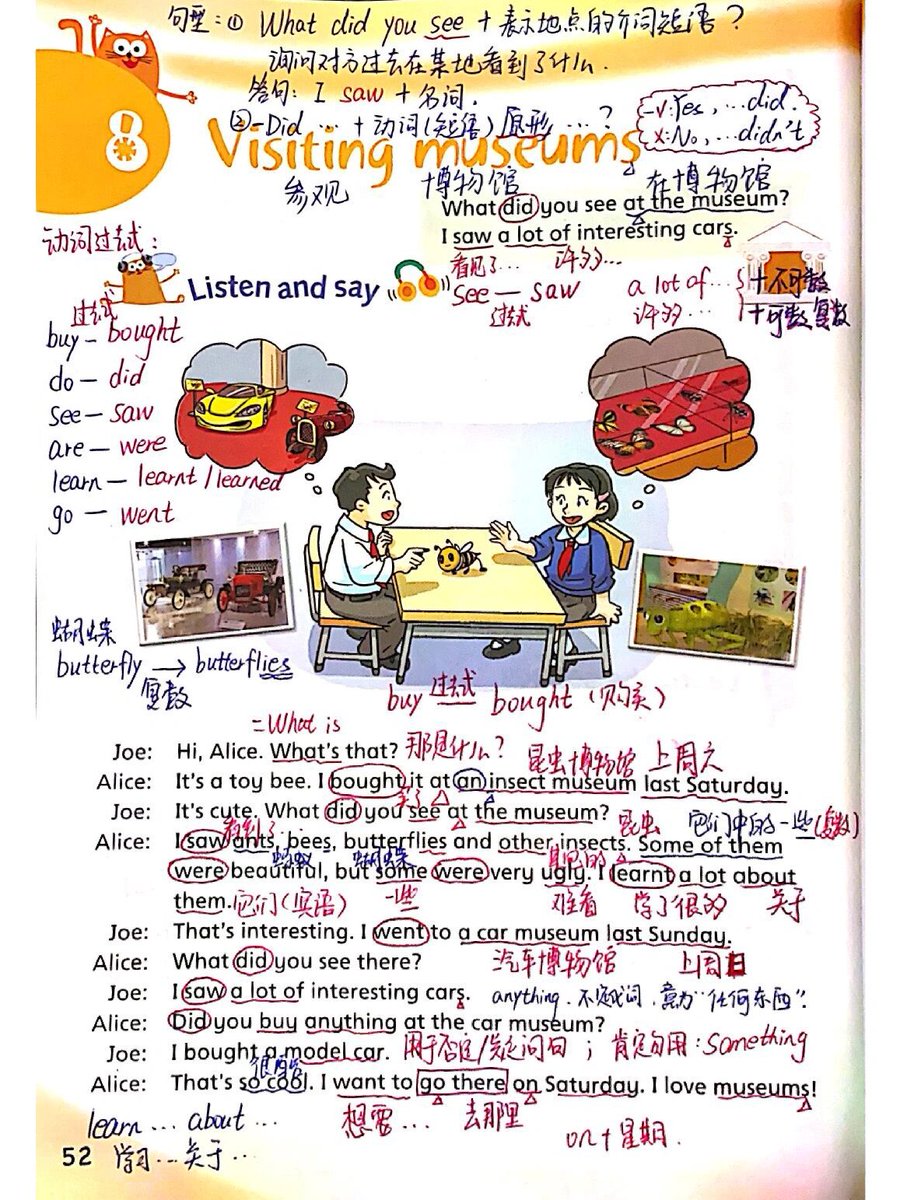 句型：① What did you see + 表示地点的介词短语？
询问对方过去在某地看到了什么.
答句：I saw + 名词.
②-Did … + 动词(短语) 原形 …？
-√:Yes, …did.
×:No, …didn't
8 Visiting museums
参观 博物馆 在博物馆
What did you see at the museum?
I saw a lot of interesting cars.
看见了… 许多…
动词过去式：
Listen and say
see — saw
过去式
a lot of… +不可数
许多… +可数复数
过去式
buy — bought
do — did
see — saw
are — were
learn — learnt / learned
go — went
蝴蝶
butterfly → butterflies
复数
buy 过去式 bought (购买)
=What is
Joe: Hi, Alice. What's that? 那是什么？
昆虫博物馆 上周六
Alice: It's a toy bee. I bought it at an insect museum last Saturday.
买了
Joe: It's cute. What did you see at the museum?
看到了 昆虫 它们中的一些(复数)
Alice: I saw ants, bees, butterflies and other insects. Some of them
蚂蚁 蝴蝶 其他的
were beautiful, but some were very ugly. I learnt a lot about
them. 它们(宾语) 一些 难看 学了很多 关于
Joe: That's interesting. I went to a car museum last Sunday.
Alice: What did you see there? 汽车博物馆 上周日
Joe: I saw a lot of interesting cars. anything. 不定代词, 意为"任何东西".
Alice: Did you buy anything at the car museum?
Joe: I bought a model car. 用于否定/疑问句；肯定句用：something
很酷
Alice: That's so cool. I want to go there on Saturday. I love museums!
learn … about … 想要… 去那里
on + 星期.
52 学习…关于…